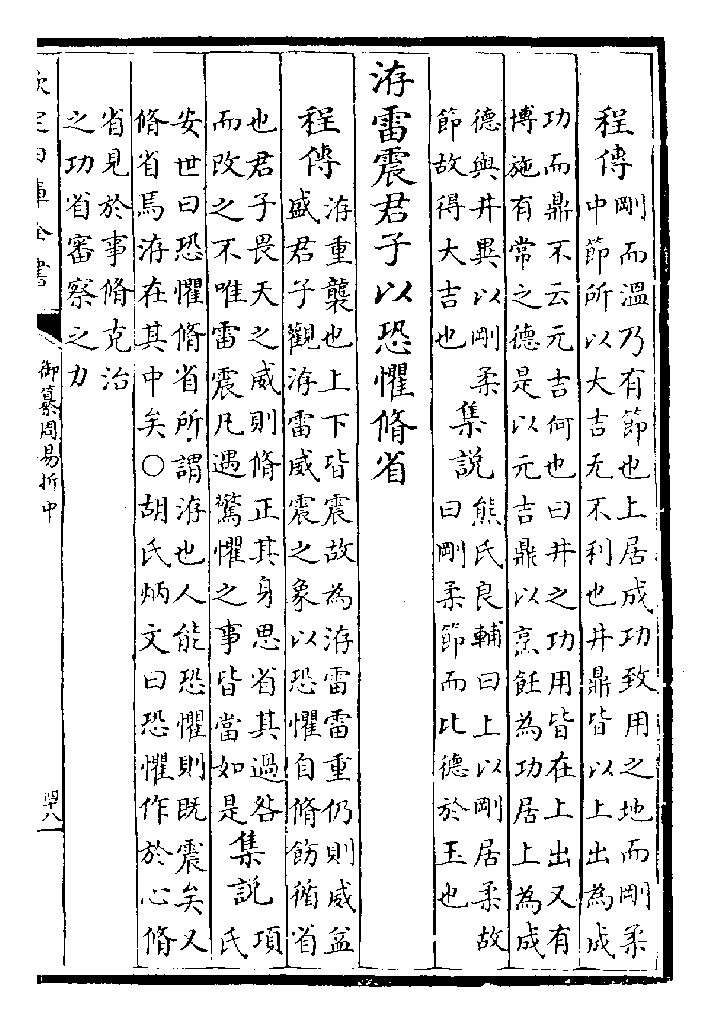 程傳
剛而溫乃有節也上居成功致用之地而剛柔
中節所以大吉无不利也井鼎皆以上出為成
功而鼎不云元吉何也曰井之功用皆在上出又有
博施有常之德是以元吉鼎以烹飪為功居上為成
德與井異以剛柔
節故得大吉也
集說
熊氏良輔曰上以剛居柔故
曰剛柔節而比德於玉也
洊雷震君子以恐懼脩省
程傳
洊重襲也上下皆震故為洊雷雷重仍則威益
盛君子觀洊雷威震之象以恐懼自脩飭循省
也君子畏天之威則脩正其身思省其過咎
而改之不唯雷震凡遇驚懼之事皆當如是
集說
項
氏
安世曰恐懼脩省所謂洊也人能恐懼則既震矣又
脩省焉洊在其中矣○胡氏炳文曰恐懼作於心脩
省見於事脩克治
之功省審察之力
欽定四庫全書
御纂周易折中
四十八